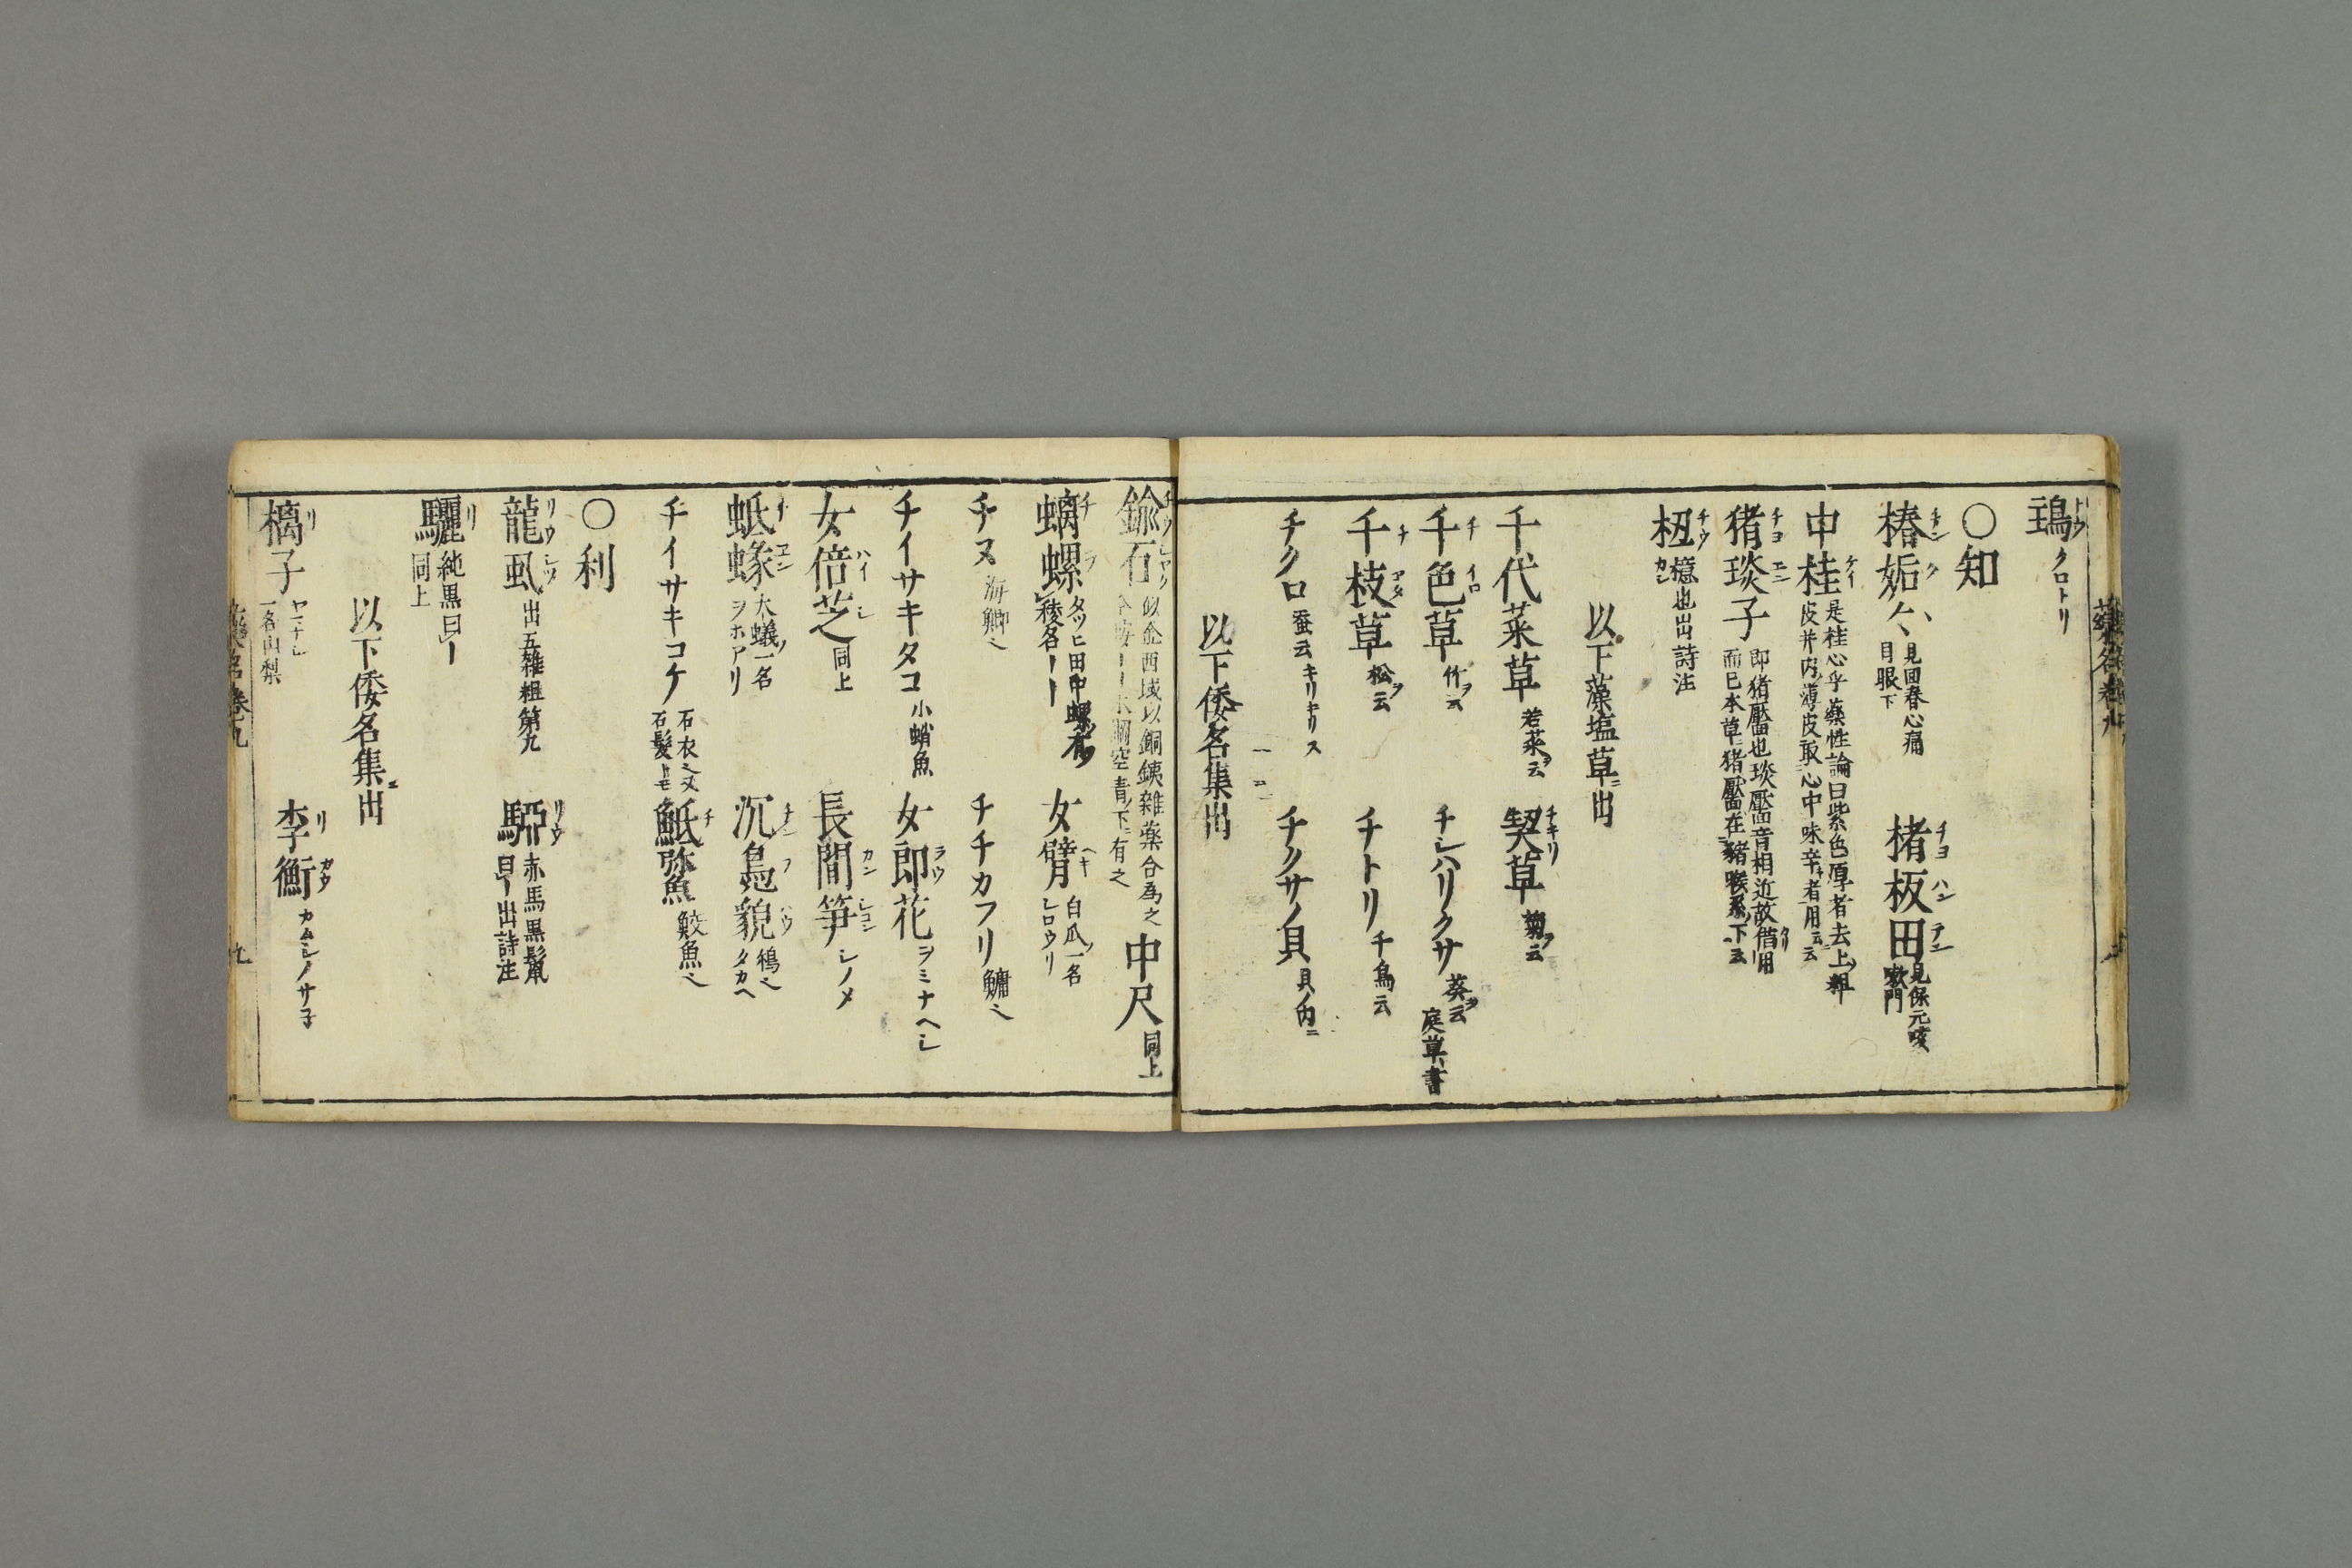 鵄 トウ クロトリ
〇知
椿姤 チン ク 見回春心痛目眼下
楮板田 チヨ ハン デン 見保元咳嗽門
中桂 ケイ 是桂心乎藥性論曰紫色厚者去上粗皮并内薄皮取心中味辛者用云云
猪琰子 チヨ エン 即猪靨也琰靨音相近故借用而已本草猪靨在豬喉系下云
杻 チウ 檍也出詩注 カシ
以下藻塩草ニ出
千代菜草 若菜ヲ云
契草 チキリ 菊ヲ云
千色草 チ イロ 竹ヲ云
チシハリクサ 葵ヲ云 庭草ニ書
千枝草 チ エダ 松ヲ云
チトリ 千鳥云
チクロ 蚕云 キリキリス
チクサノ貝 貝ノ内ニ
以下倭名集ニ出
鍮石 チウ シヤク 似金西域以銅鐵雜藥合爲之 空青ノ下ニ有之
中尺 同上
螭螺 チ ラ タツヒ田中螺 稜名ーー
女臂 ヘキ 白瓜ノ一名 シロウリ
チヌ 海鯽也
チチカフリ 鱅也
チイサキタコ 小蛸魚
女郎花 ラウ ヲミナヘシ
女倍芝 ハイ シ 同上
長間笋 カン シユン シノメ
蚳蝝 チ エン 大蟻ノ一名 ヲホアリ
沉鳧貌 チン フ バウ 鵇也 タカヘ
チイサキコケ 石衣也又石髮トモ
魧弥魚 チ 鮫魚也
〇利
龍虱 リウ シツ 出五雑俎第九
騮 リウ 赤馬黒髦曰ー出詩注
驪 リ 純黒曰ー同上
以下倭名集ニ出
樆子 リ ヤマナシ 一名山梨
李衡 リ カウ カムシノサ子
藥名 巻九 九